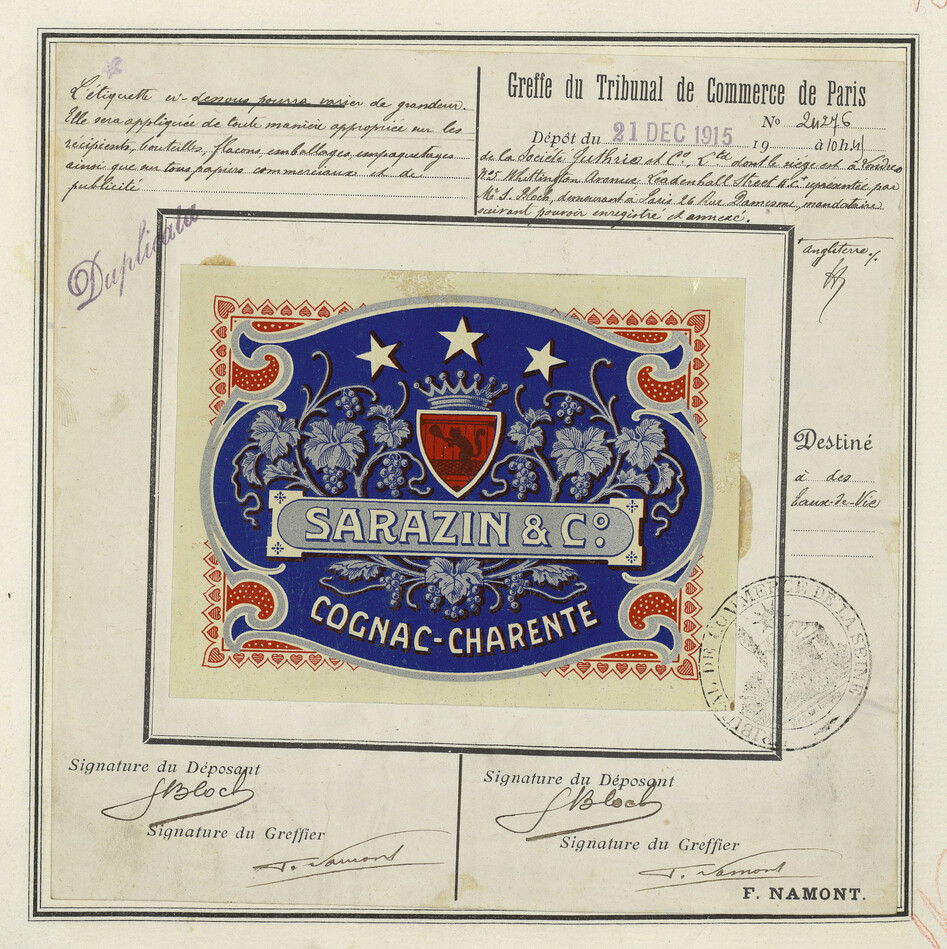 L'étiquette ci-dessous pourra varier de grandeur.
Elle sera appliquée de toute manière appropriée sur les
récipients, bouteilles, flacons, emballages, empaquetages
ainsi que sur tous papiers commerciaux et de
publicité
Duplicata
Greffe du Tribunal de Commerce de Paris
No 24276
Dépôt du 21 DEC 1915 19 à 10h
de la Société Guthrie et Co Ltd dont le siège est à Londres
No 5 Whittington Avenue Leadenhall Street E.C+ représentée par
Mr S. Bloch, demeurant à Paris 26 Rue Damesme, mandataire
suivant pouvoir enregistré et annexé.
+ Angleterre ./.
SARAZIN & Co.
COGNAC-CHARENTE
Destiné
à des
Eaux-de-Vie
TRIBUNAL DE COMMERCE DE LA SEINE
Signature du Déposant
SBloch
Signature du Greffier
F. Namont
Signature du Déposant
SBloch
Signature du Greffier
F. Namont
F. NAMONT.